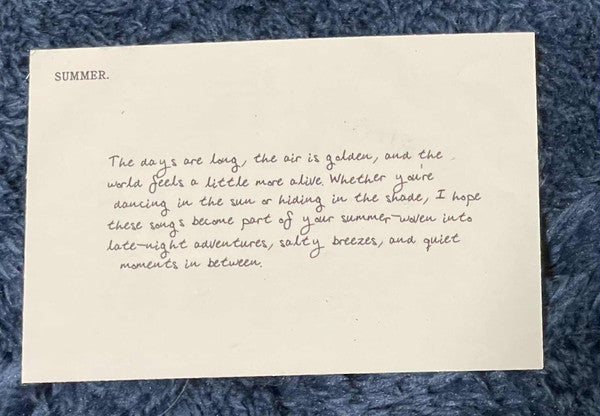 SUMMER.
The days are long, the air is golden, and the
world feels a little more alive. Whether you're
dancing in the sun or hiding in the shade, I hope
these songs become part of your summer-woven into
late-night adventures, salty breezes, and quiet
moments in between.